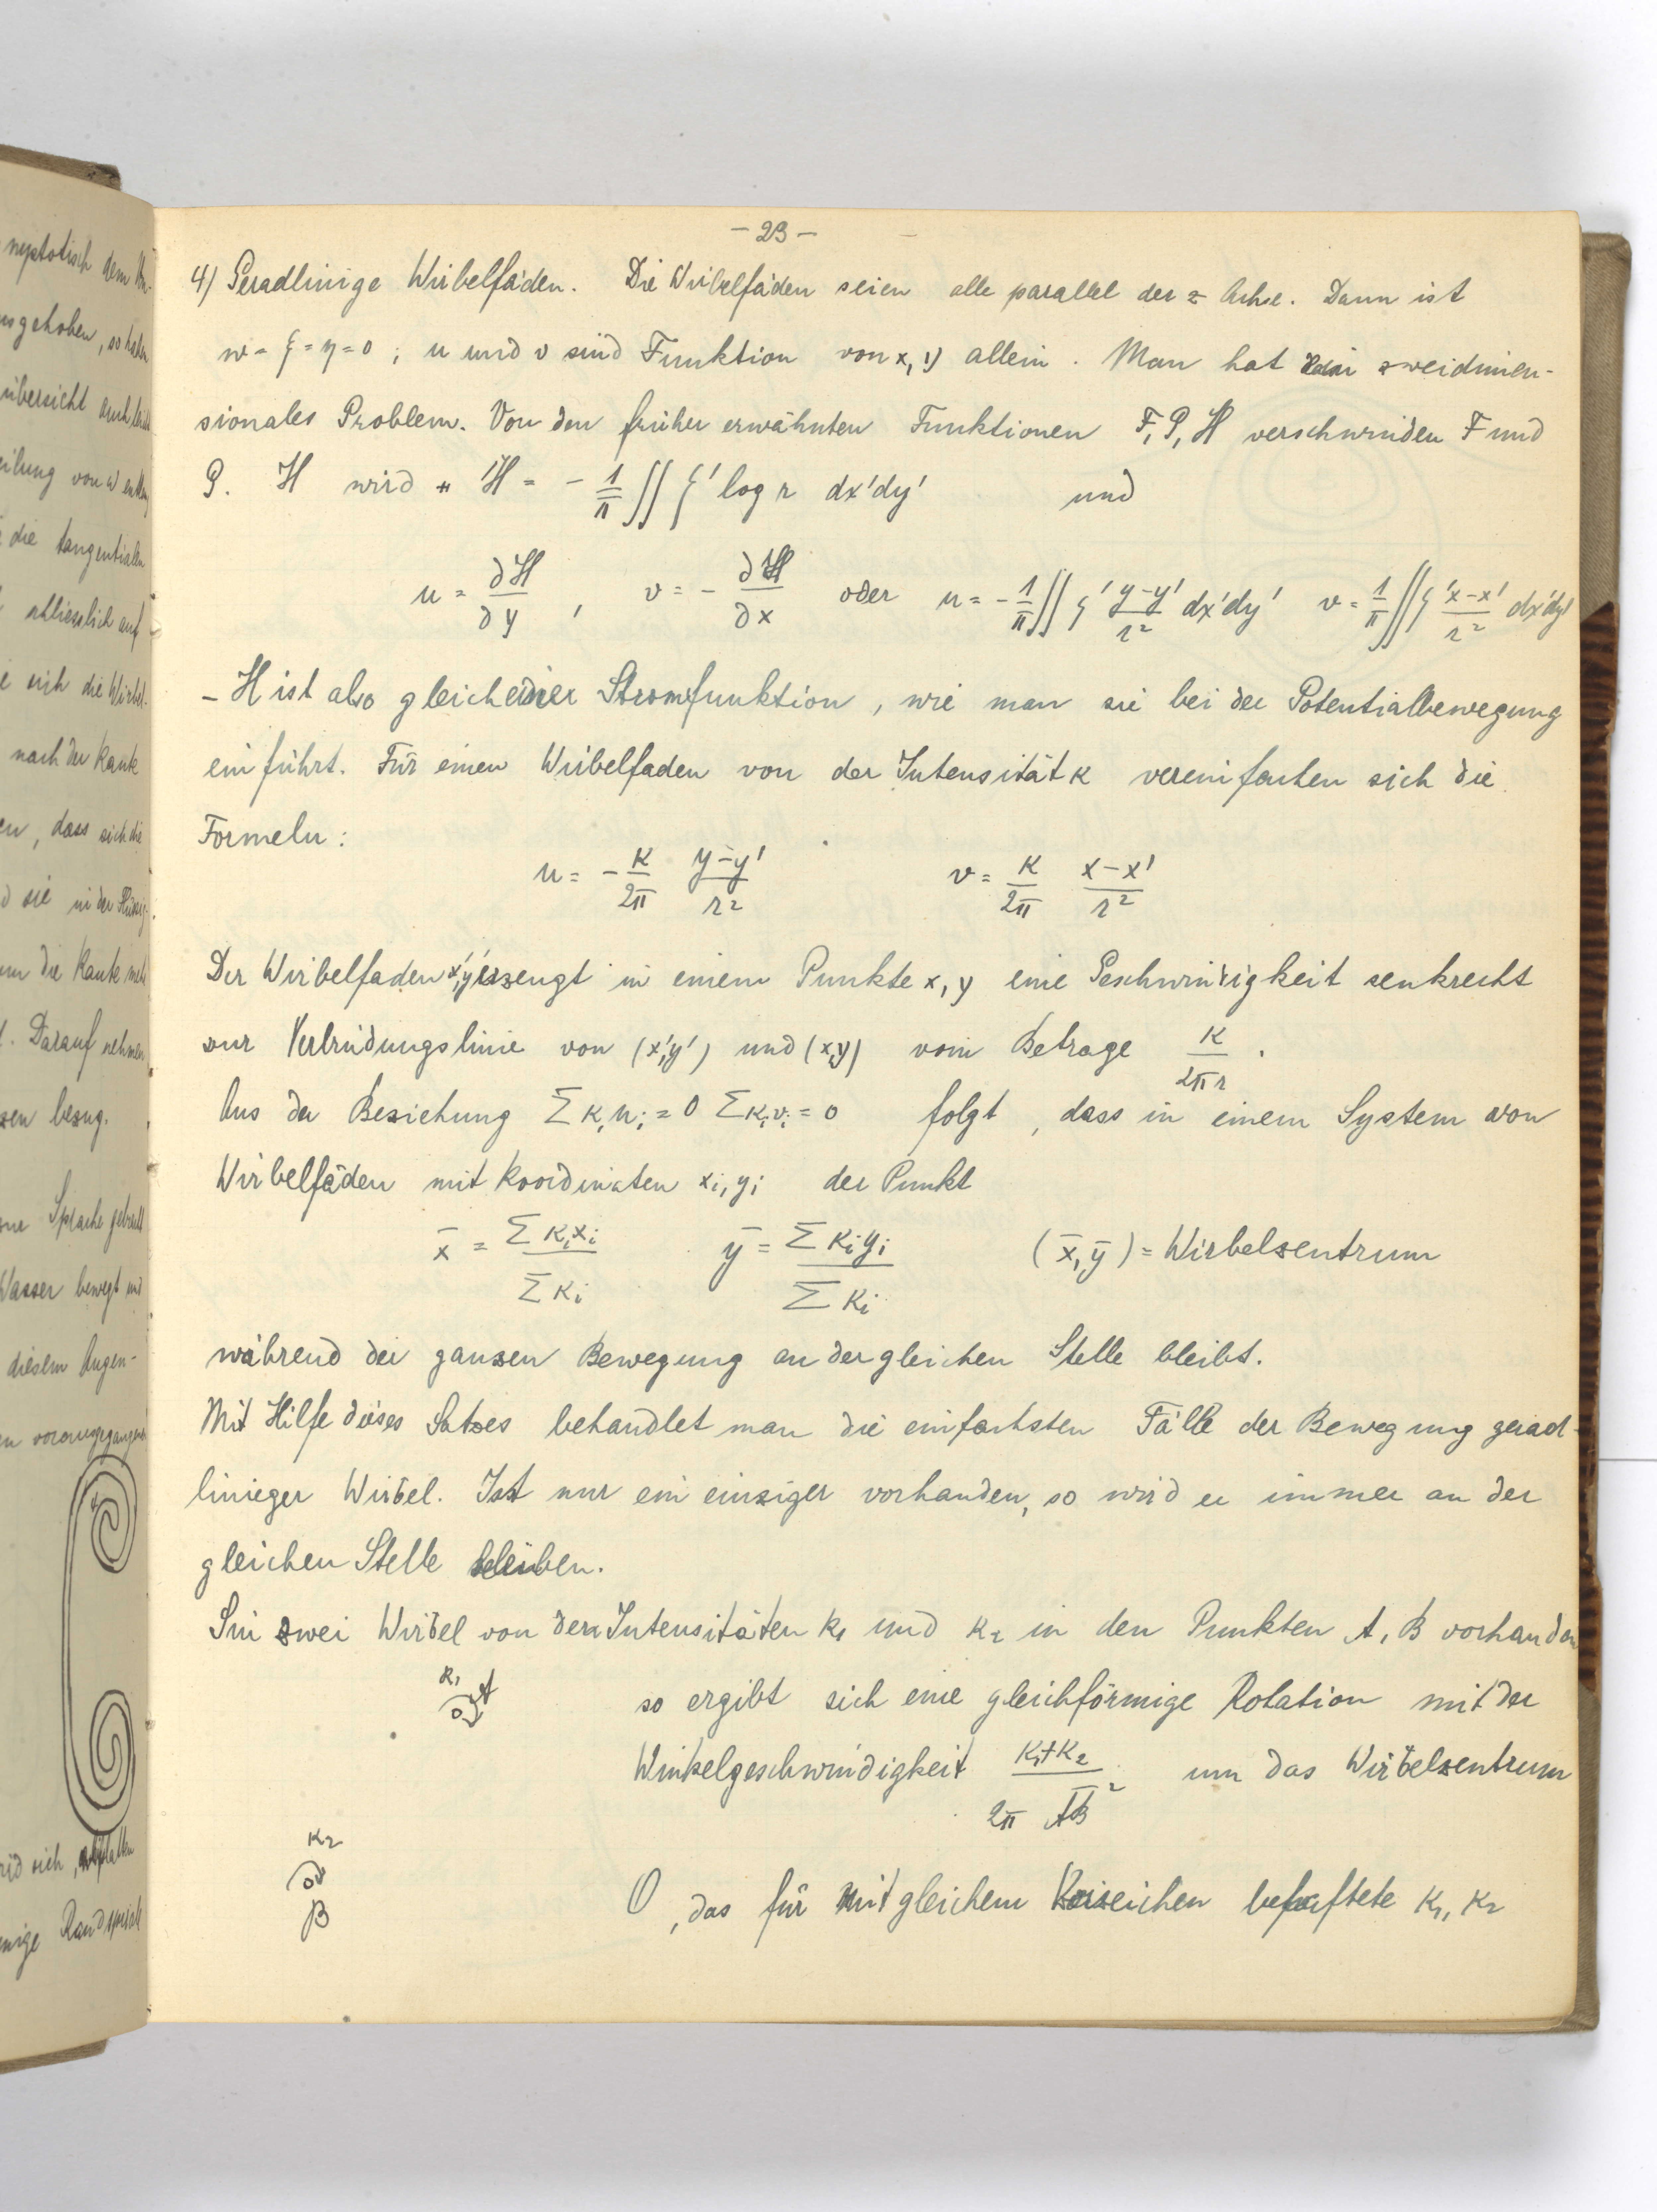 - 23 -
4) Geradlinige Wirbelfäden. Die Wirbelfäden seien alle parallel der z Achse. Dann ist
w = ξ = η = 0 ; u und v sind Funktion von x, y allein. Man hat ein zweidimen-
sionales Problem. Von den früher erwähnten Funktionen F, G, H verschwinden F und
G. H wird H = - 1/π ∬ ζ' log r dx'dy' und
u = ∂H/∂y , v = - ∂H/∂x oder u = - 1/π ∬ ζ' (y-y')/r² dx'dy' v = 1/π ∬ ζ' (x-x')/r² dx'dy'
- H ist also gleich einer Stromfunktion, wie man sie bei der Potentialbewegung
einführt. Für einen Wirbelfaden von der Intensität κ vereinfachen sich die
Formeln:
u = - κ/2π (y-y')/r² v = κ/2π (x-x')/r²
Der Wirbelfaden x', y' erzeugt in einem Punkte x, y eine Geschwindigkeit senkrecht
zur Verbindungslinie von (x', y') und (x, y) vom Betrage κ/2πr.
Aus der Beziehung Σ κᵢuᵢ = 0 Σ κᵢvᵢ = 0 folgt, dass in einem System von
Wirbelfäden mit Koordinaten xᵢ, yᵢ der Punkt
x̄ = Σ κᵢxᵢ / Σ κᵢ ȳ = Σ κᵢyᵢ / Σ κᵢ (x̄, ȳ) = Wirbelzentrum
während der ganzen Bewegung an der gleichen Stelle bleibt.
Mit Hilfe dieses Satzes behandlet man die einfachsten Fälle der Bewegung gerad-
linieger Wirbel. Ist nur ein einziger vorhanden, so wird er immer an der
gleichen Stelle bleiben.
Sin zwei Wirbel von den Intensitäten κ₁ und κ₂ in den Punkten A, B vorhanden
κ₁ A
so ergibt sich eine gleichförmige Rotation mit der
Winkelgeschwindigkeit (κ₁+κ₂)/(2π A̅B̅²) um das Wirbelzentrum
κ₂
B
O, das für mit gleichem Vorzeichen behaftete κ₁, κ₂